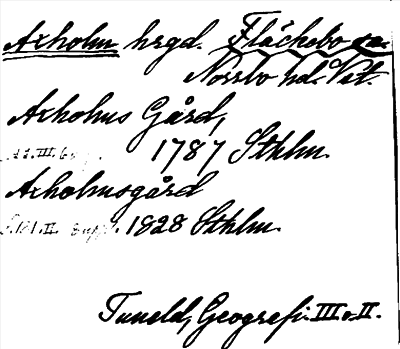 Axholm hrgd. Fläckebo sn.
Norrbo hd. Vst.
Axholms Gård,
1787 Sthlm.
Axholmsgård
1828 Sthlm.
Tuneld, Geografi. III o. II.